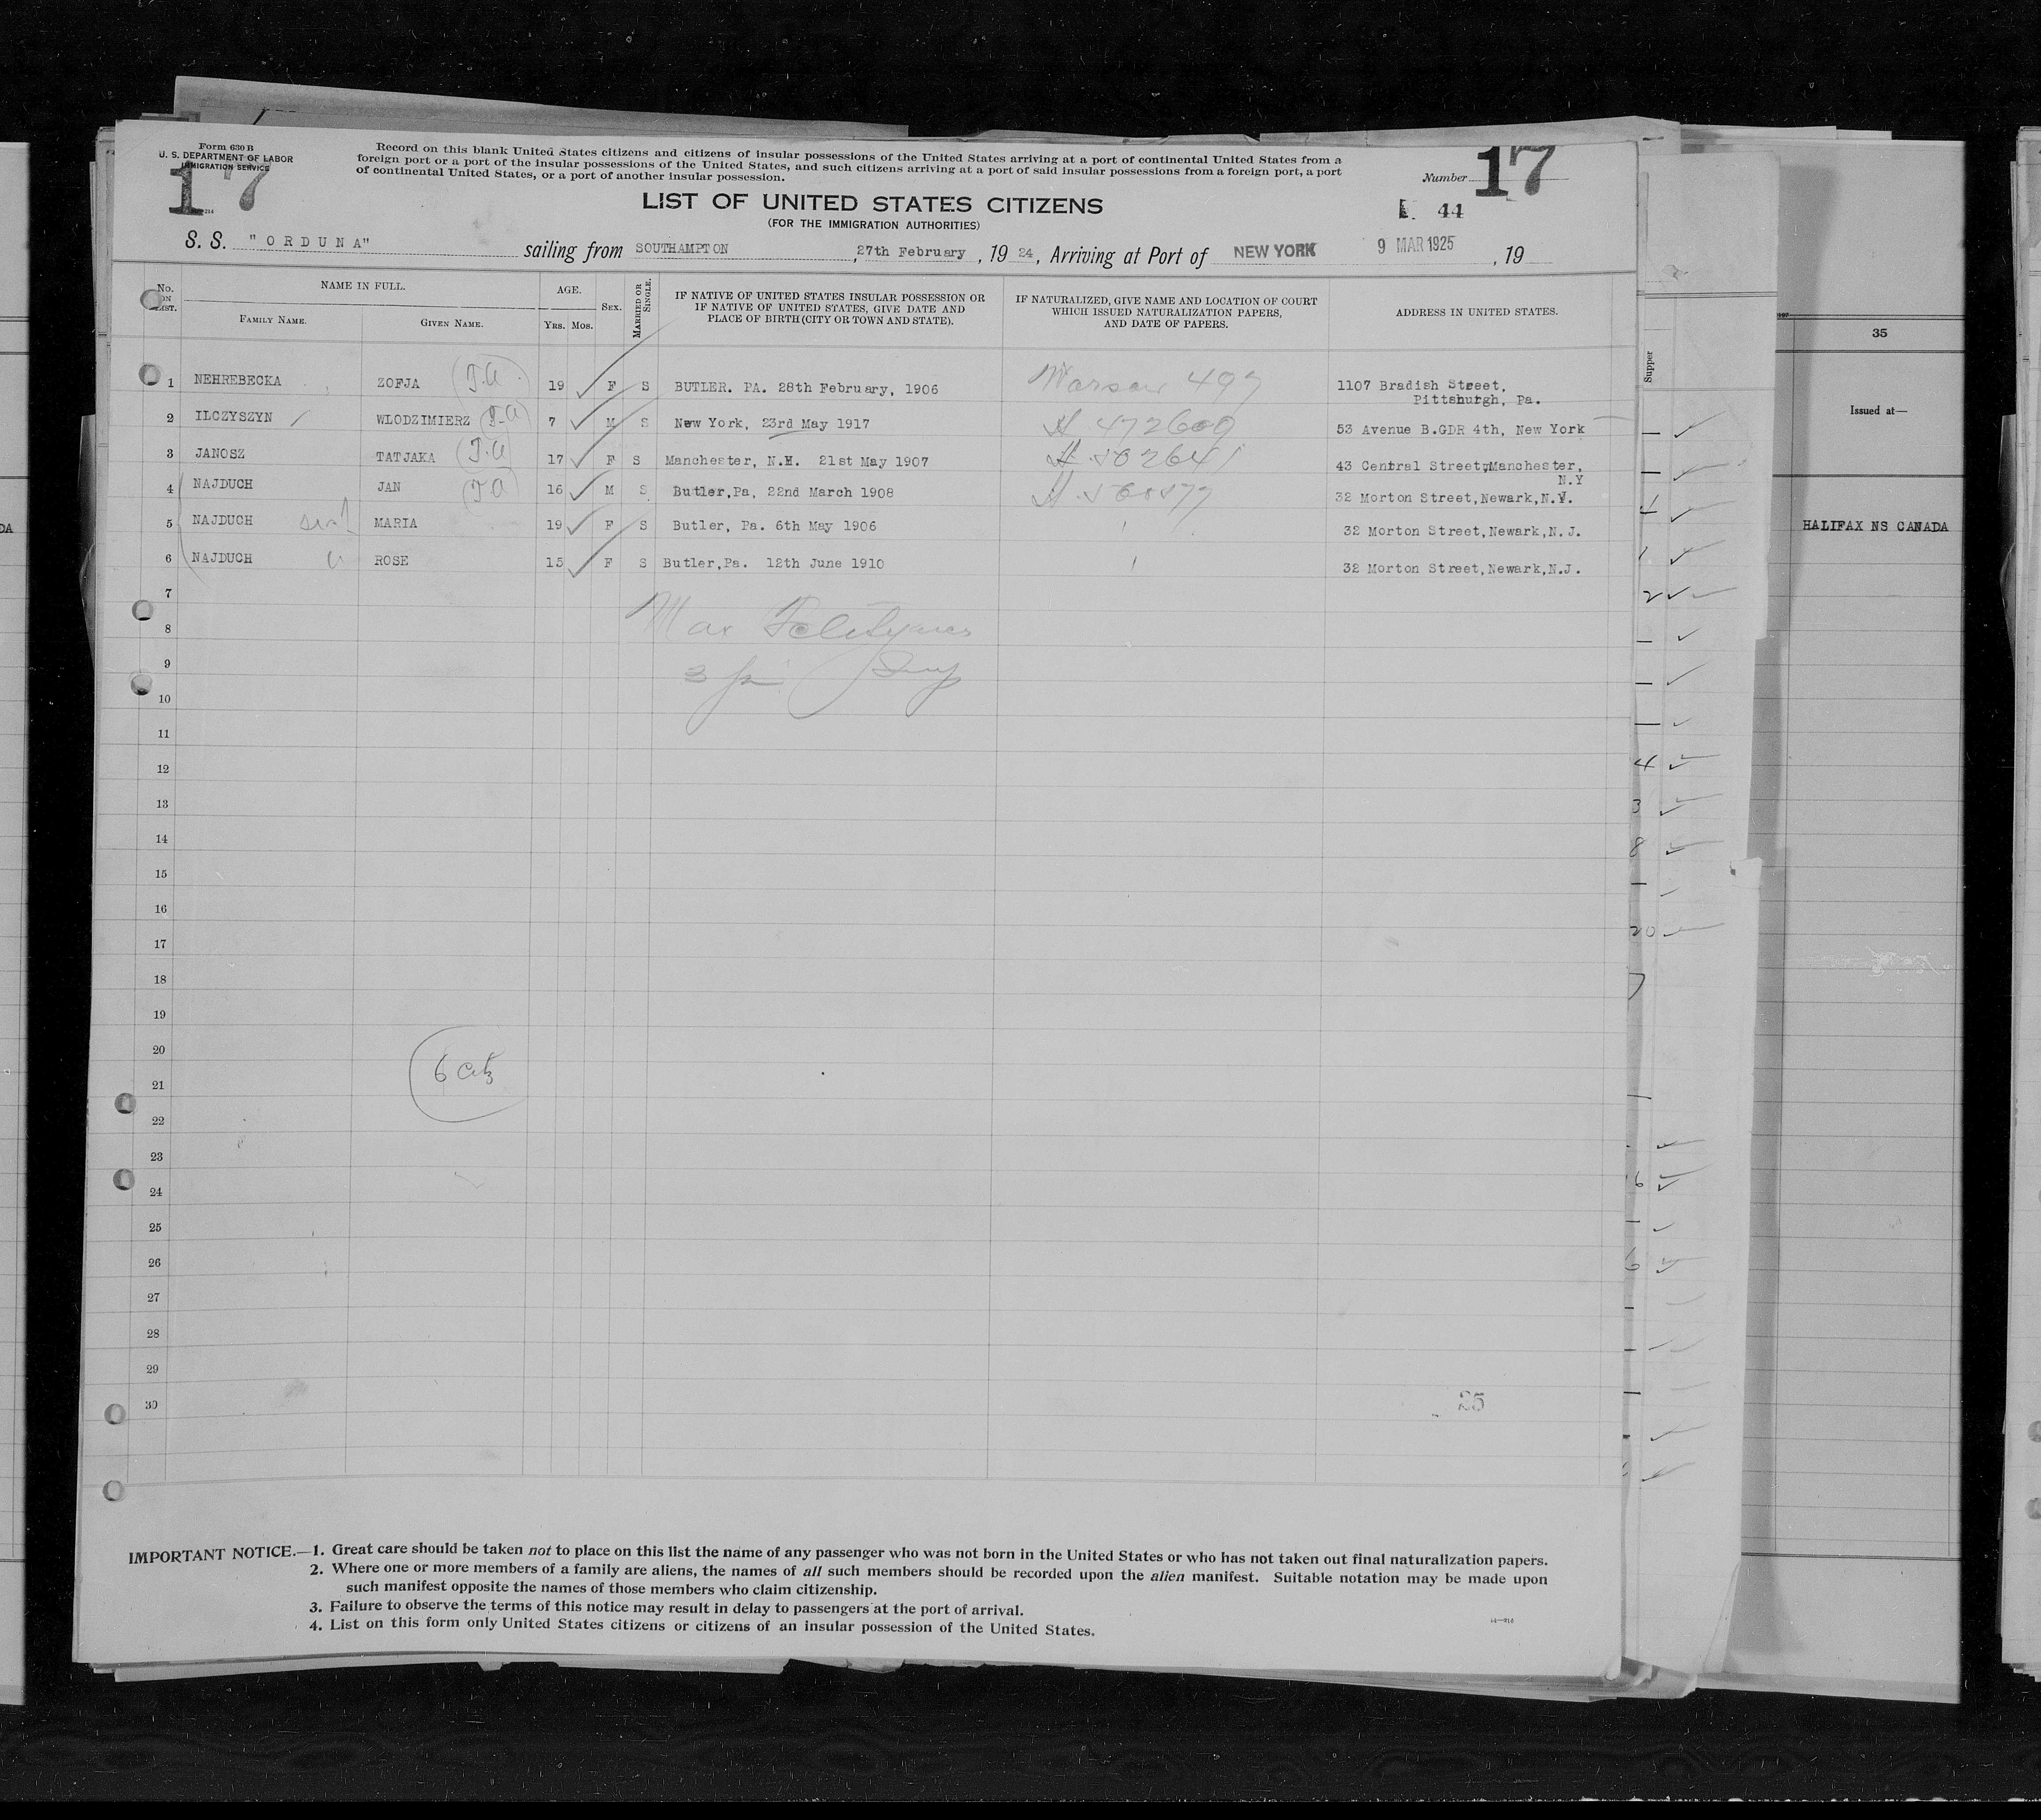 Form 630 B
U. S. DEPARTMENT OF LABOR
IMMIGRATION SERVICE
17
Record on this blank United States citizens and citizens of insular possessions of the United States arriving at a port of continental United States from a
foreign port or a port of the insular possessions of the United States, and such citizens arriving at a port of said insular possessions from a foreign port, a port
of continental United States, or a port of another insular possession.
Number 17
LIST OF UNITED STATES CITIZENS
44
(FOR THE IMMIGRATION AUTHORITIES)
S. S. "ORDUNA" sailing from SOUTHAMPTON, 27th February, 19 24, Arriving at Port of NEW YORK 9 MAR 1925, 19
No. ON LIST.
NAME IN FULL.
FAMILY NAME.
GIVEN NAME.
AGE.
YRS. MOS.
SEX.
MARRIED OR SINGLE.
IF NATIVE OF UNITED STATES INSULAR POSSESSION OR
IF NATIVE OF UNITED STATES, GIVE DATE AND
PLACE OF BIRTH (CITY OR TOWN AND STATE).
IF NATURALIZED, GIVE NAME AND LOCATION OF COURT
WHICH ISSUED NATURALIZATION PAPERS,
AND DATE OF PAPERS.
ADDRESS IN UNITED STATES.
1 NEHREBECKA ZOFJA 19 F S BUTLER. PA. 28th February, 1906 Warsaw 497 1107 Bradish Street,
Pittsburgh, Pa.
2 ILCZYSZYN WLODZIMIERZ 7 M S New York, 23rd May 1917 472600 53 Avenue B.GDR 4th, New York
3 JANOSZ TATJAKA 17 F S Manchester, N.H. 21st May 1907 43 Central Street, Manchester,
N.Y
4 NAJDUCH JAN 16 M S Butler,Pa, 22nd March 1908 32 Morton Street,Newark,N.Y.
5 NAJDUCH MARIA 19 F S Butler, Pa. 6th May 1906 32 Morton Street,Newark,N.J.
6 NAJDUCH ROSE 15 F S Butler,Pa. 12th June 1910 32 Morton Street,Newark,N.J.
7
8
9
10
11
12
13
14
15
16
17
18
19
20
6 citz
21
22
23
24
25
26
27
28
29
30
25
IMPORTANT NOTICE.—1. Great care should be taken not to place on this list the name of any passenger who was not born in the United States or who has not taken out final naturalization papers.
2. Where one or more members of a family are aliens, the names of all such members should be recorded upon the alien manifest. Suitable notation may be made upon
such manifest opposite the names of those members who claim citizenship.
3. Failure to observe the terms of this notice may result in delay to passengers at the port of arrival.
4. List on this form only United States citizens or citizens of an insular possession of the United States.
Supper
35
Issued at—
HALIFAX NS CANADA